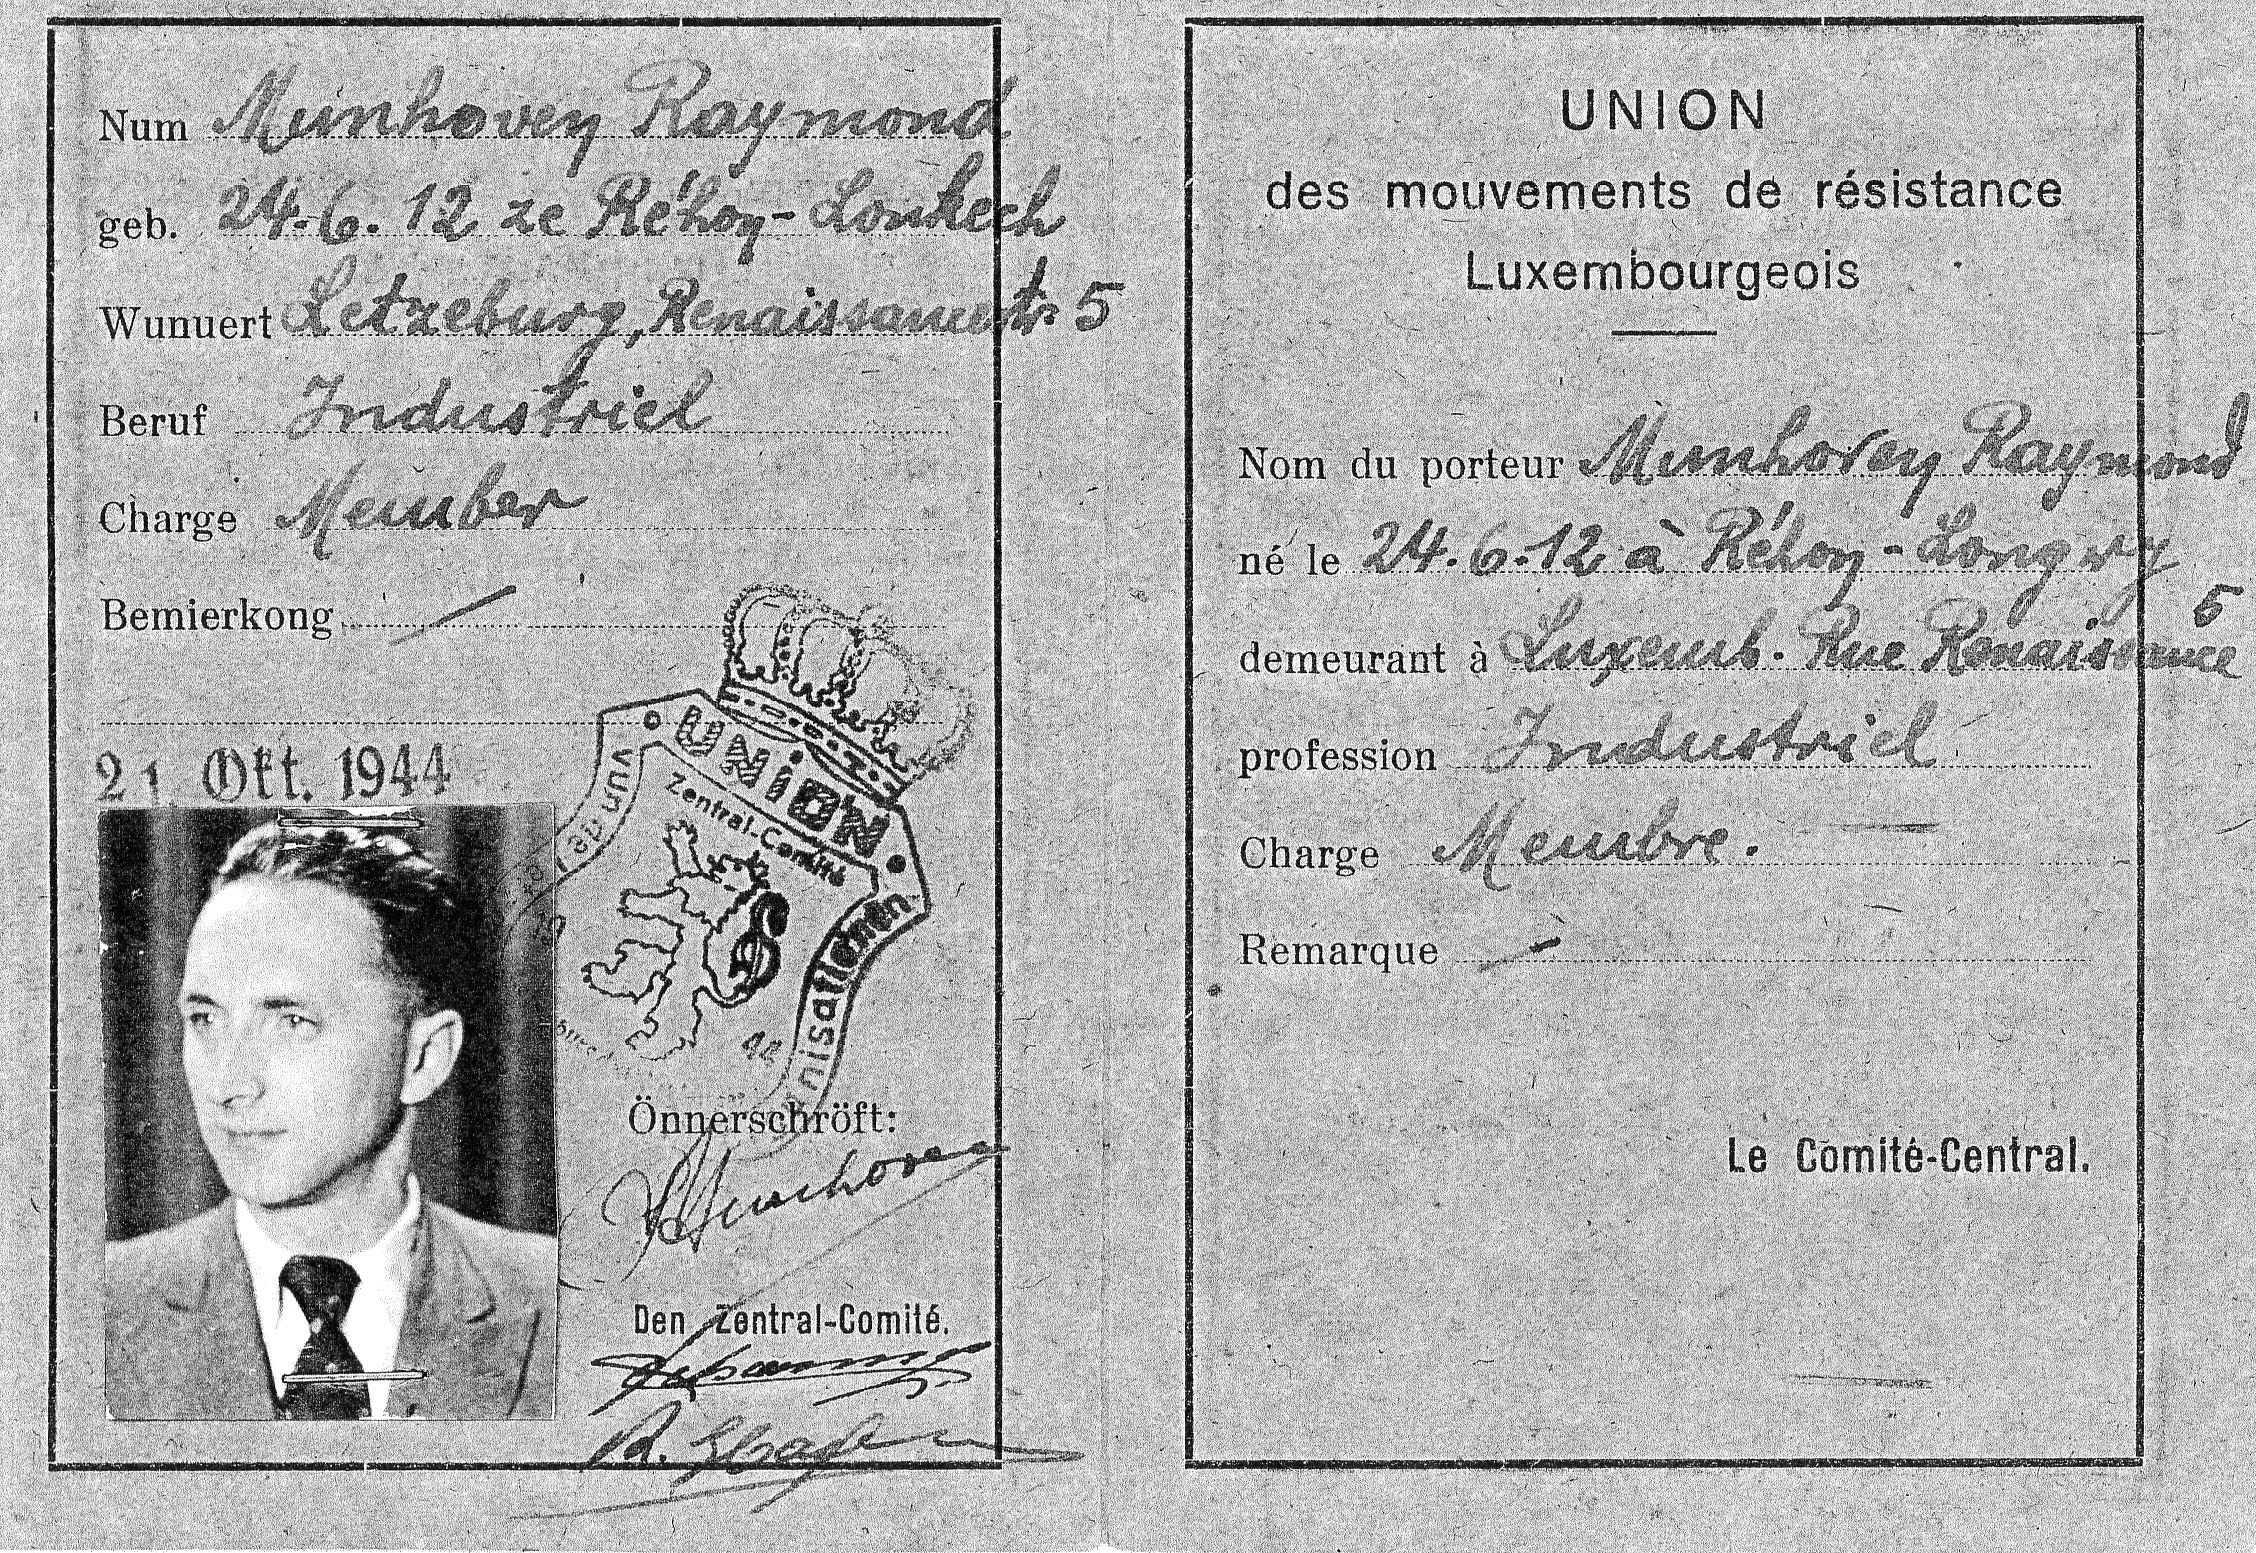 Num Munhoven Raymond
geb. 24.6.12 ze Réhon-Lonkech
Wunuert Letzeburg, Renaissancestr. 5
Beruf Industriel
Charge Member
Bemierkong
21. Okt. 1944
UNION
Zentral-Comité
vun de
nisatiounen
42
Önnerschröft:
Munhoven
Den Zentral-Comité.
UNION
des mouvements de résistance
Luxembourgeois
Nom du porteur Munhoven Raymond
né le 24.6.12 à Réhon-Longwy
5
demeurant à Luxemb. Rue Renaissance
profession Industriel
Charge Membre.
Remarque -
Le Comité-Central.